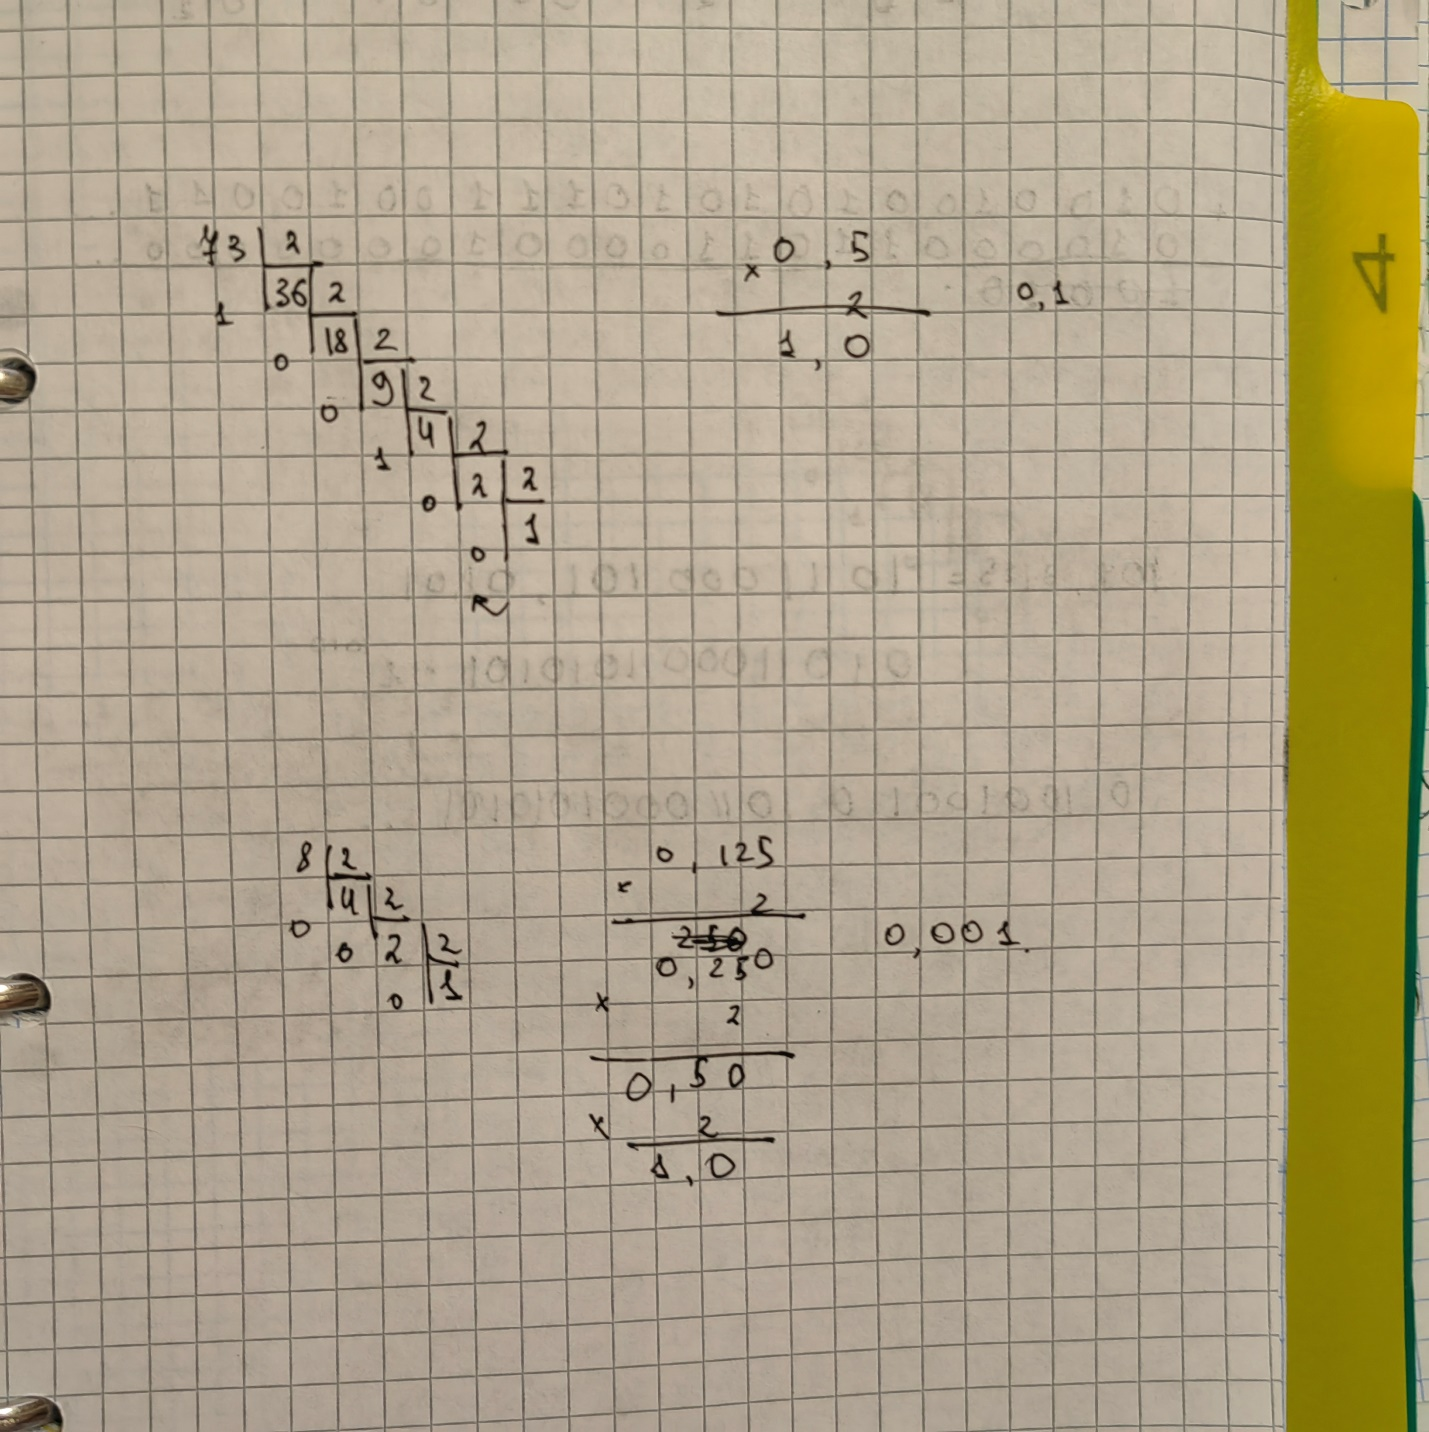 73 2
36 2
1
18 2
0
9 2
0
4 2
1
2 2
0
1
0
0,5
×
2
1,0
0,1
8 2
4 2
0
0 2 2
0 1
0,125
×
2
250
0,250
×
2
0,50
×
2
1,0
0,001.
4